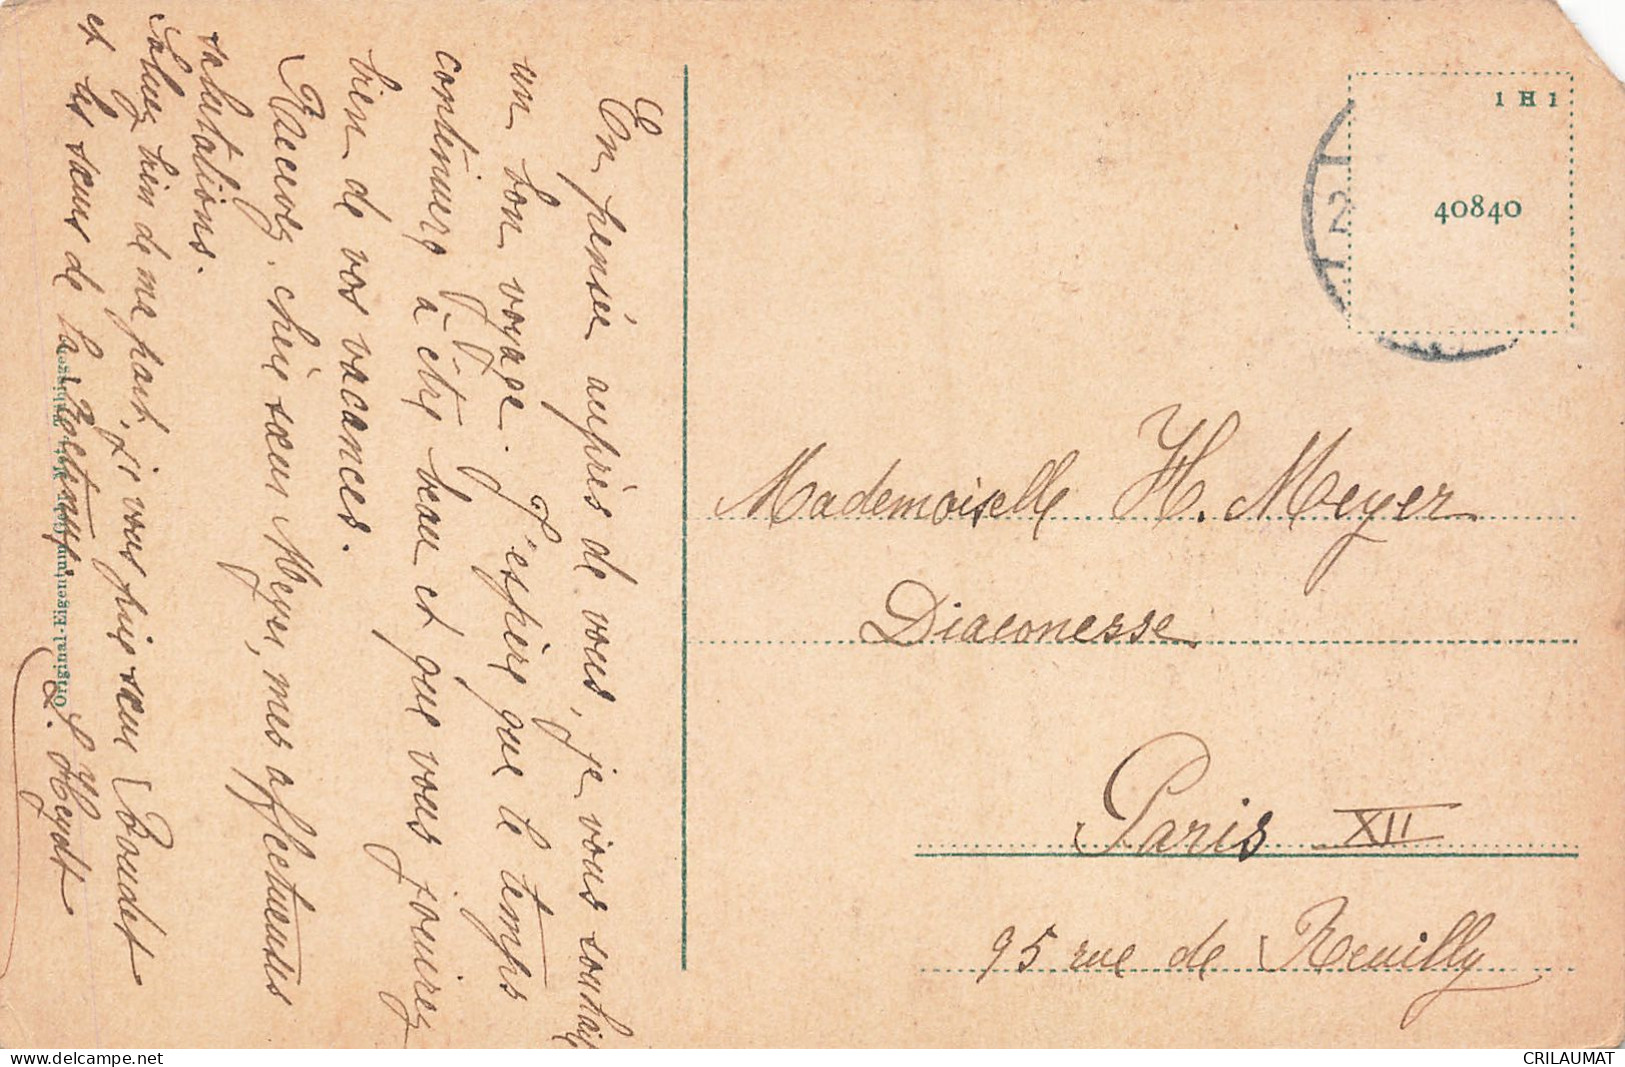 En pensée auprès de vous, je vous souhaite
un bon voyage. J'espère que le temps
continuera à être beau et que vous jouirez
bien de vos vacances.
Recevez, chère sœur Meyer, mes affectueuses
salutations.
Saluez bien de ma part, je vous prie sœur Boudet
et les sœurs de la
S. Heydt
Original-Eigentum
1 H 1
40840
2
Mademoiselle H. Meyer
Diaconesse
Paris XII
95 rue de Reuilly
CRILAUMAT